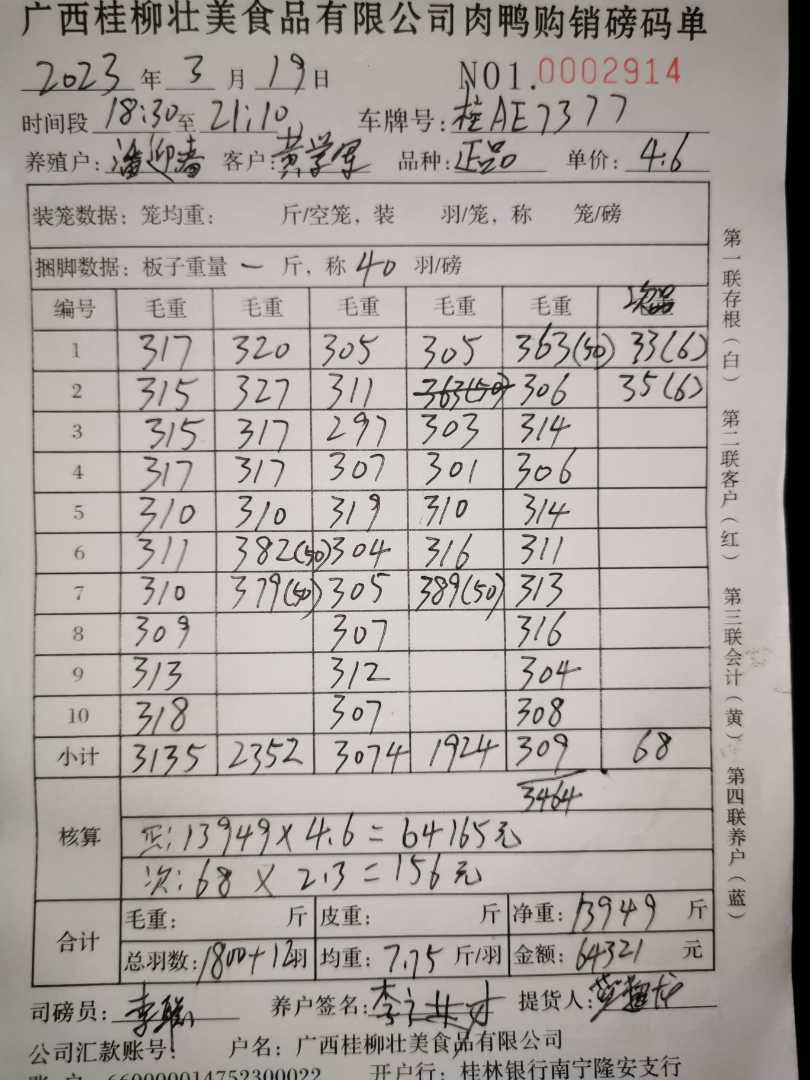 广西桂柳壮美食品有限公司肉鸭购销磅码单
2023 年 3 月 19 日 NO1.0002914
时间段 18:30 至 21:10 车牌号: 桂AE7377
养殖户: 潘迎春 客户: 黄学军 品种: 正品 单价: 4.6
装笼数据: 笼均重: 斤/空笼, 装 羽/笼, 称 笼/磅
捆脚数据: 板子重量 一 斤, 称 40 羽/磅
编号 毛重 毛重 毛重 毛重 毛重 次品
1 317 320 305 305 363(50) 33(6)
2 315 327 311 363(50) 306 35(6)
3 315 317 297 303 314
4 317 317 307 301 306
5 310 310 319 310 314
6 311 382(50) 304 316 311
7 310 379(50) 305 389(50) 313
8 309 307 316
9 313 312 304
10 318 307 308
小计 3135 2352 3074 1924 309 68
3464
核算 正: 13949 × 4.6 = 64165元
次: 68 × 2.3 = 156元
合计 毛重: 斤 皮重: 斤 净重: 13949 斤
总羽数: 1800+12羽 均重: 7.75 斤/羽 金额: 64321 元
司磅员: 养户签名: 提货人:
公司汇款账号: 户名: 广西桂柳壮美食品有限公司
账 户 660000014752300022 开户行: 桂林银行南宁隆安支行
第一联存根(白)
第二联客户(红)
第三联会计(黄)
第四联养户(蓝)